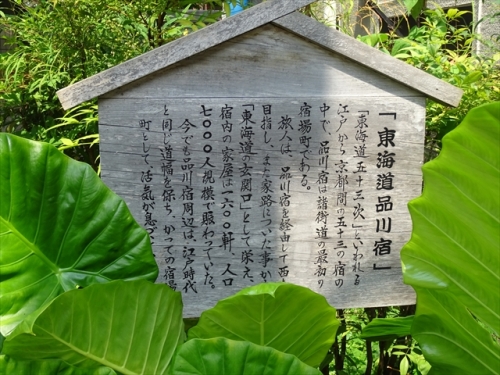 「東海道品川宿」
「東海道五十三次」といわれる
江戸から京都間の五十三の宿の
中で、品川宿は諸街道の最初の
宿場町である。
旅人は、品川宿を経由して西
目指し、また家路についた事か
「東海道の玄関口」として栄え、
宿内の家屋は一六〇〇軒、人口
七〇〇〇人規模で賑わっていた。
今でも品川宿周辺は、江戸時代
と同じ道幅を保ち、かつての宿場
町として、活気が息づ